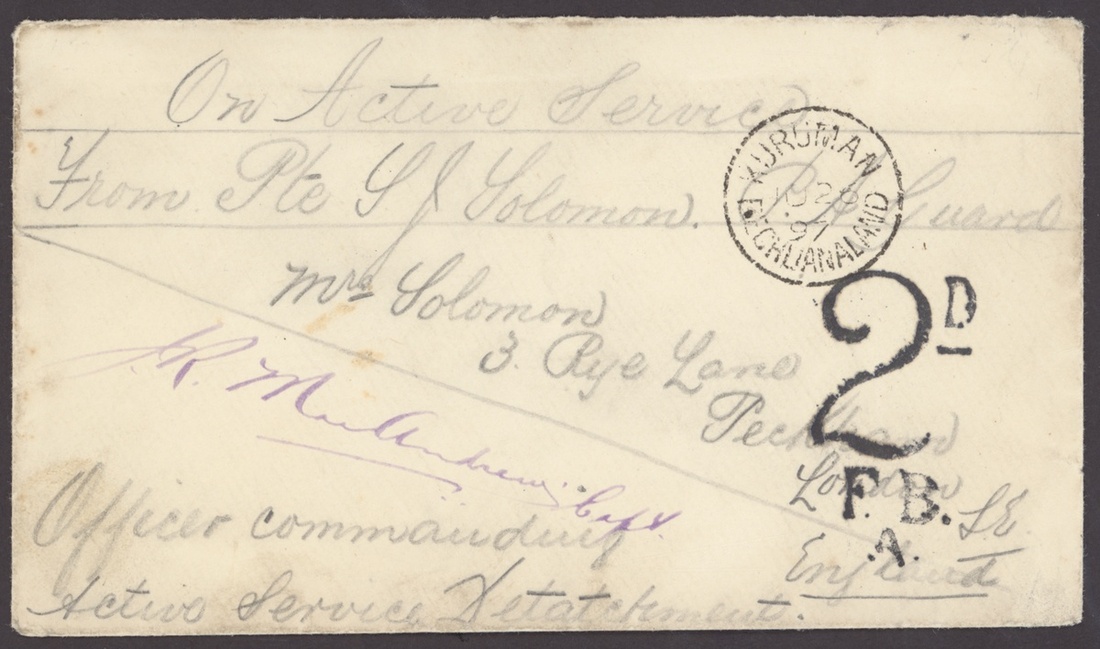 On Active Service
From Pte S J Solomon. P. A Guard
KURUMAN
28
97
BECHUANALAND
2D
Mrs Solomon
3. Rye Lane
Peckham
London S.E
England
F.B.
.A.
J.R. MacAndrew. Capt.
Officer commanding
Active Service Detatchment.